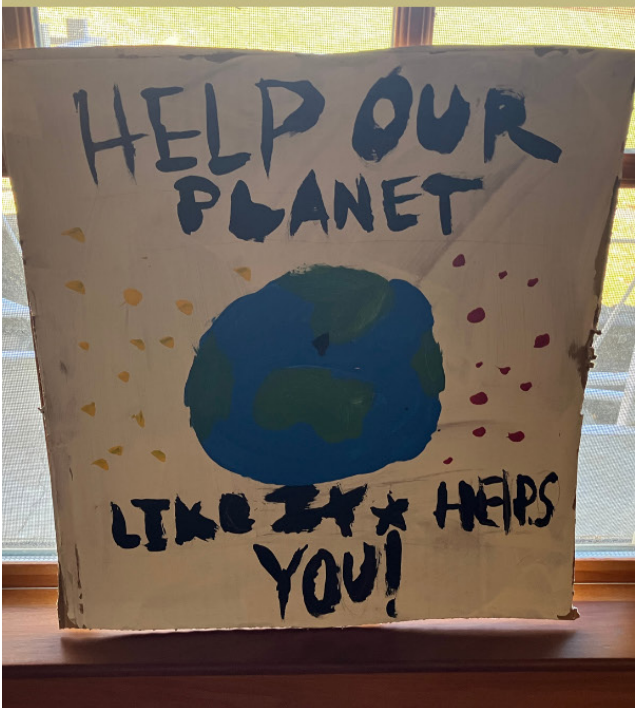 HELP OUR
PLANET
LIKE IT HELPS
YOU!